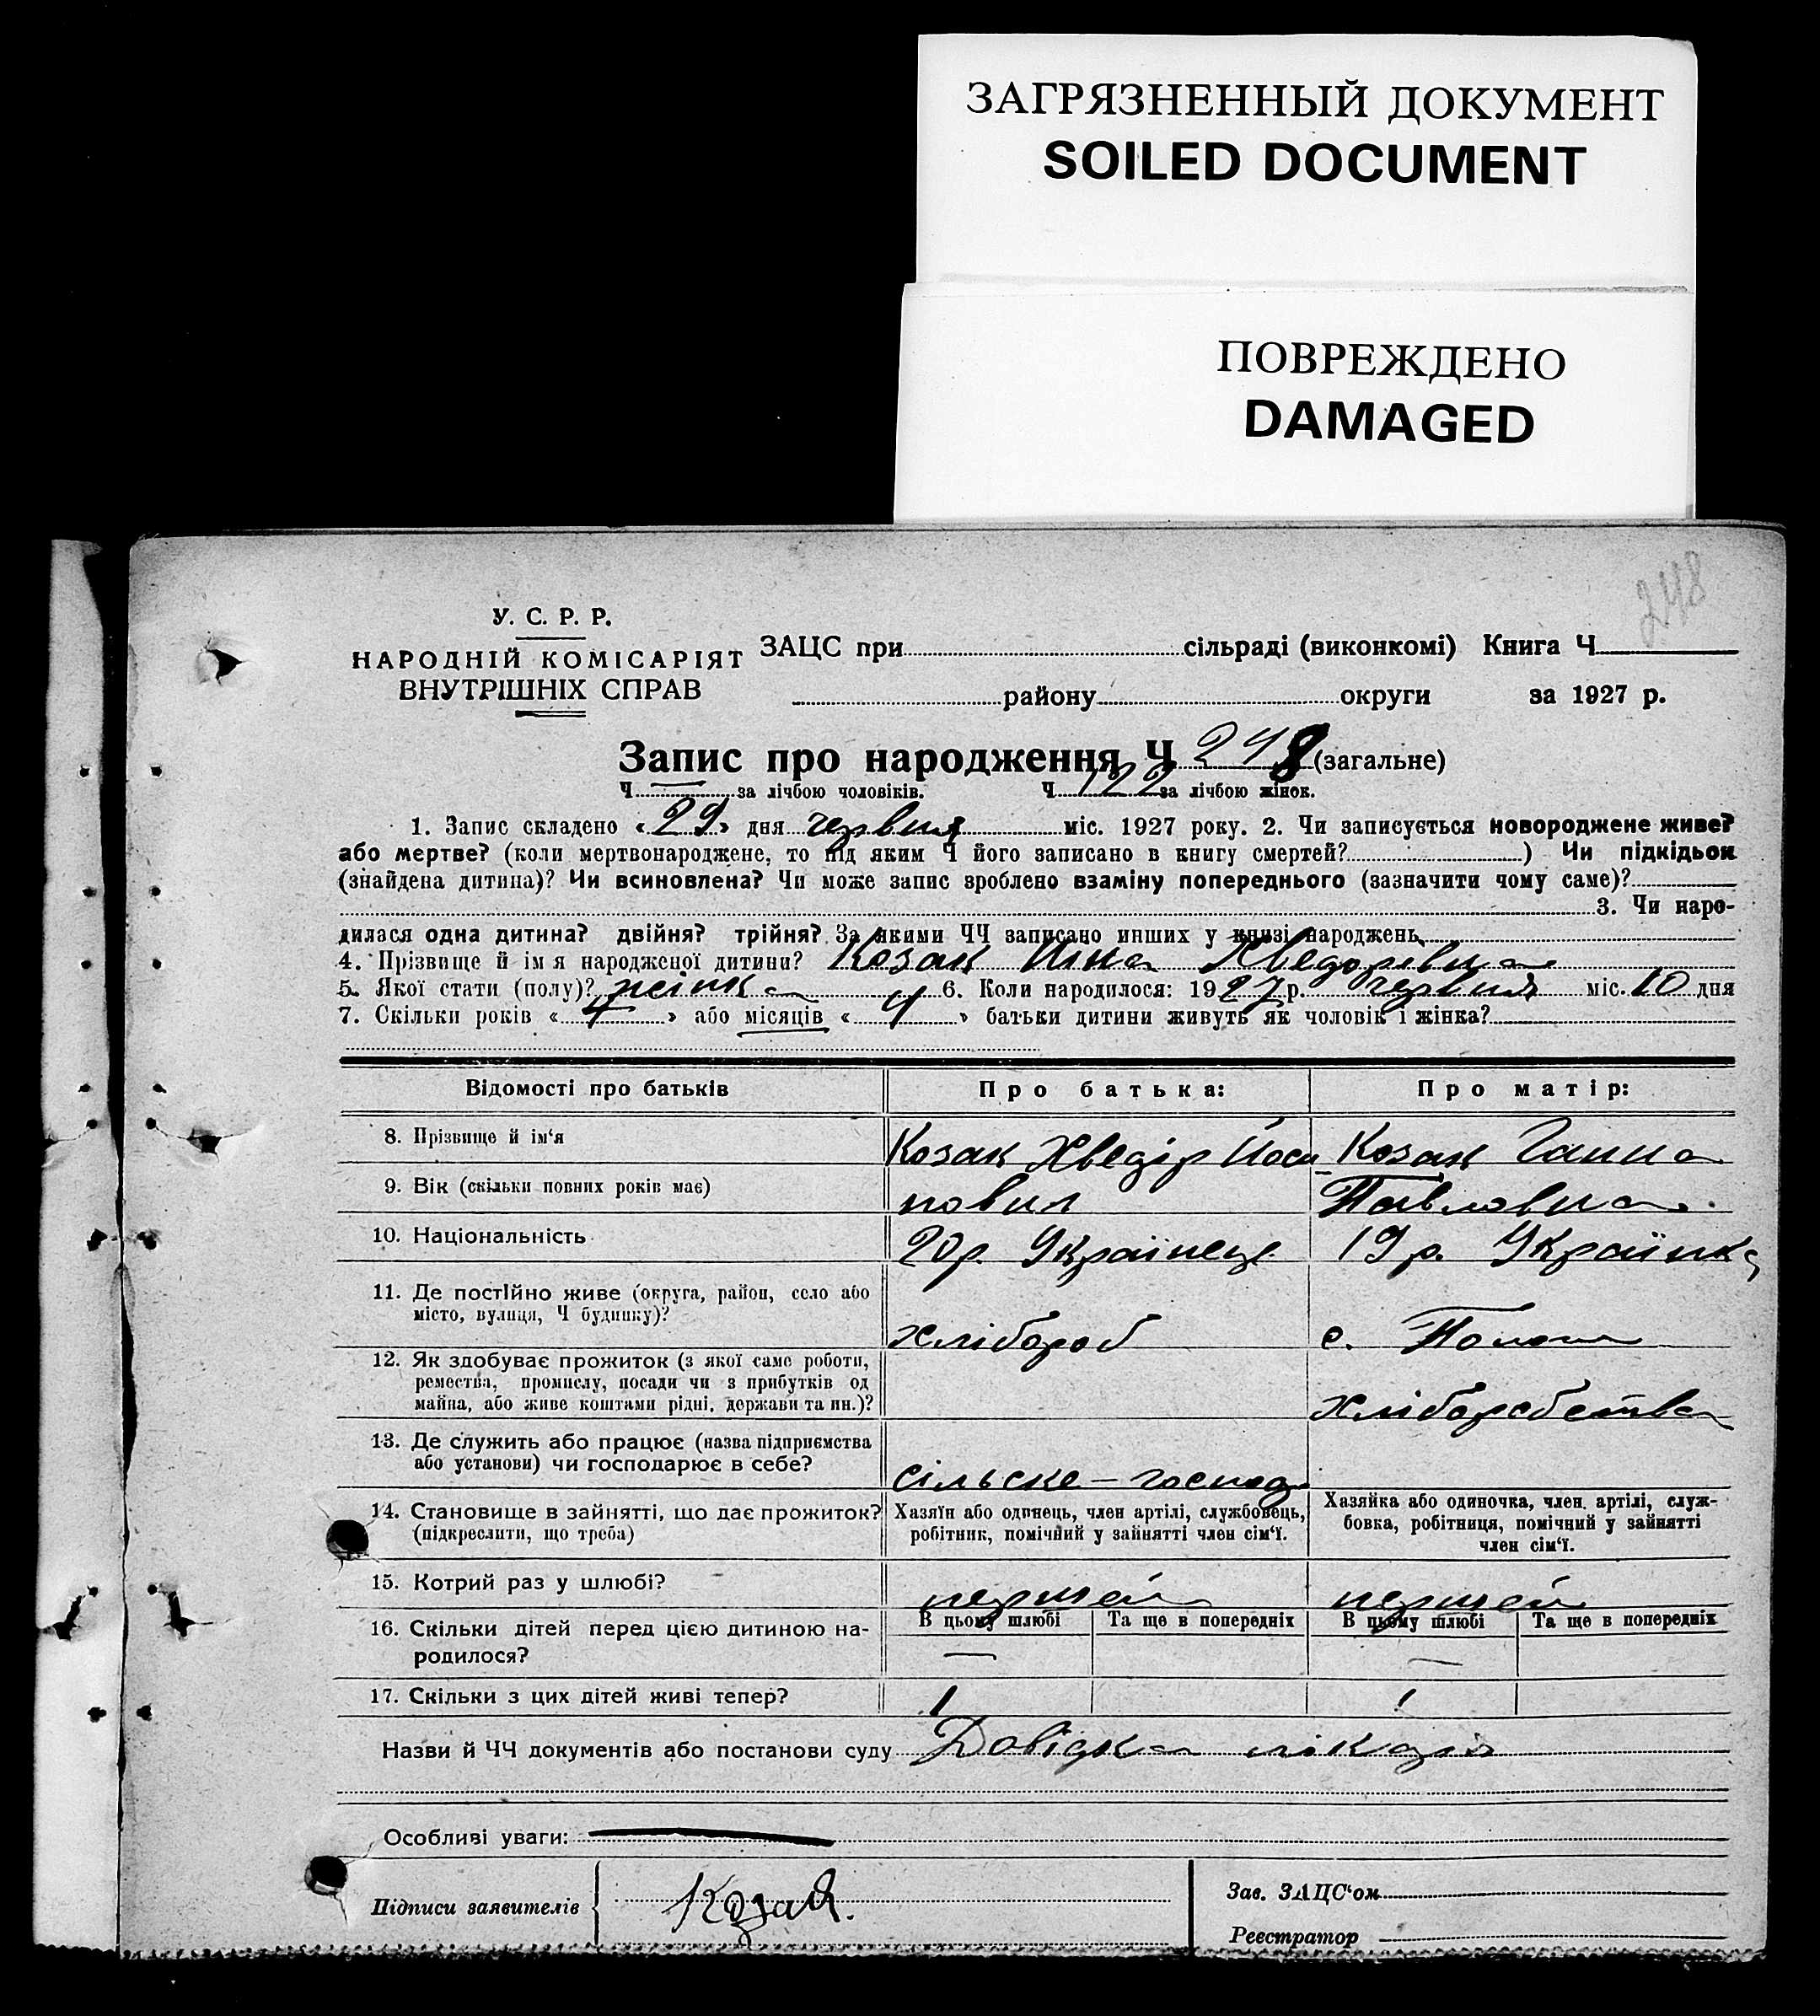 ЗАГРЯЗНЕННЫЙ ДОКУМЕНТ
SOILED DOCUMENT
ПОВРЕЖДЕНО
DAMAGED
248
У. С. Р. Р.
НАРОДНІЙ КОМІСАРІЯТ
ВНУТРІШНІХ СПРАВ
ЗАЦС при сільраді (виконкомі) Книга Ч
району округи за 1927 р.
Запис про народження Ч 248 (загальне)
Ч — за лічбою чоловіків. Ч 122 за лічбою жінок.
1. Запис складено «29» дня червня міс. 1927 року. 2. Чи записується новороджене живе?
або мертве? (коли мертвонароджене, то під яким Ч його записано в книгу смертей? ) Чи підкідьок
(знайдена дитина)? Чи всиновлена? Чи може запис зроблено взаміну попереднього (зазначити чому саме)?
3. Чи наро-
дилася одна дитина? двійня? трійня? За якими ЧЧ записано инших у книзі народжень
4. Прізвище й ім я народженої дитини? Козак Нина Хведоревна
5. Якої стати (полу)? жінка 6. Коли народилося: 1927 р. червня міс. 10 дня
7. Скільки років « » або місяців « » батьки дитини живуть як чоловік і жінка?
Відомості про батьків Про батька: Про матір:
8. Прізвище й ім'я Козак Хведір Йоси Козак Ганна
9. Вік (скільки повних років має) пович Павловна
10. Національність 20 р. Українець 19 р. Українка
11. Де постійно живе (округа, район, село або
місто, вулиця, Ч будинку)?
хлібороб с.
12. Як здобуває прожиток (з якої саме роботи,
ремества, промислу, посади чи з прибутків од
майна, або живе коштами рідні, держави та ин.)?
хліборобства
13. Де служить або працює (назва підприємства
або установи) чи господарює в себе?
сільске-господ
14. Становище в зайнятті, що дає прожиток?
(підкреслити, що треба)
Хазяїн або одинець, член артілі, службовець,
робітник, помічний у зайнятті член сім'ї.
Хазяйка або одиночка, член артілі, служ-
бовка, робітниця, помічний у зайнятті
член сім'ї.
15. Котрий раз у шлюбі? першей першей
16. Скільки дітей перед цією дитиною на-
родилося?
В цьому шлюбі Та ще в попередніх В цьому шлюбі Та ще в попередніх
— —
17. Скільки з цих дітей живі тепер? 1 1
Назви й ЧЧ документів або постанови суду Довідка лікаря
Особливі уваги: —
Підписи заявителів Козак.
Зав. ЗАЦС'ом
Реестратор